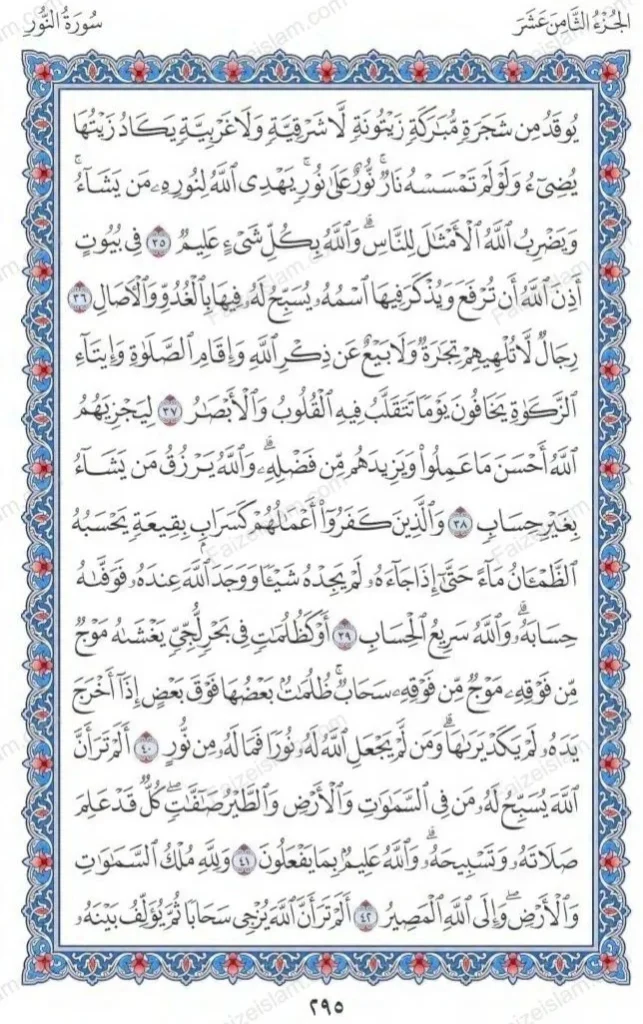 الجُزْءُ الثَّامِنَ عَشَرَ
سُورَةُ النُّورِ
يُوقَدُ مِن شَجَرَةٍ مُّبَٰرَكَةٍ زَيْتُونَةٍ لَّا شَرْقِيَّةٍ وَلَا غَرْبِيَّةٍ يَكَادُ زَيْتُهَا
يُضِىٓءُ وَلَوْ لَمْ تَمْسَسْهُ نَارٌ ۚ نُّورٌ عَلَىٰ نُورٍ ۗ يَهْدِى ٱللَّهُ لِنُورِهِۦ مَن يَشَآءُ ۚ
وَيَضْرِبُ ٱللَّهُ ٱلْأَمْثَٰلَ لِلنَّاسِ ۗ وَٱللَّهُ بِكُلِّ شَىْءٍ عَلِيمٌ ٣٥ فِى بُيُوتٍ
أَذِنَ ٱللَّهُ أَن تُرْفَعَ وَيُذْكَرَ فِيهَا ٱسْمُهُۥ يُسَبِّحُ لَهُۥ فِيهَا بِٱلْغُدُوِّ وَٱلْءَاصَالِ ٣٦
رِجَالٌ لَّا تُلْهِيهِمْ تِجَٰرَةٌ وَلَا بَيْعٌ عَن ذِكْرِ ٱللَّهِ وَإِقَامِ ٱلصَّلَوٰةِ وَإِيتَآءِ
ٱلزَّكَوٰةِ يَخَافُونَ يَوْمًا تَتَقَلَّبُ فِيهِ ٱلْقُلُوبُ وَٱلْأَبْصَٰرُ ٣٧ لِيَجْزِيَهُمُ
ٱللَّهُ أَحْسَنَ مَا عَمِلُوا۟ وَيَزِيدَهُم مِّن فَضْلِهِۦ ۗ وَٱللَّهُ يَرْزُقُ مَن يَشَآءُ
بِغَيْرِ حِسَابٍ ٣٨ وَٱلَّذِينَ كَفَرُوٓا۟ أَعْمَٰلُهُمْ كَسَرَابٍۭ بِقِيعَةٍ يَحْسَبُهُ
ٱلظَّمْـَٔانُ مَآءً حَتَّىٰٓ إِذَا جَآءَهُۥ لَمْ يَجِدْهُ شَيْـًٔا وَوَجَدَ ٱللَّهَ عِندَهُۥ فَوَفَّىٰهُ
حِسَابَهُۥ ۗ وَٱللَّهُ سَرِيعُ ٱلْحِسَابِ ٣٩ أَوْ كَظُلُمَٰتٍ فِى بَحْرٍ لُّجِّىٍّ يَغْشَىٰهُ مَوْجٌ
مِّن فَوْقِهِۦ مَوْجٌ مِّن فَوْقِهِۦ سَحَابٌ ۚ ظُلُمَٰتٌۢ بَعْضُهَا فَوْقَ بَعْضٍ إِذَآ أَخْرَجَ
يَدَهُۥ لَمْ يَكَدْ يَرَىٰهَا ۗ وَمَن لَّمْ يَجْعَلِ ٱللَّهُ لَهُۥ نُورًا فَمَا لَهُۥ مِن نُّورٍ ٤٠ أَلَمْ تَرَ أَنَّ
ٱللَّهَ يُسَبِّحُ لَهُۥ مَن فِى ٱلسَّمَٰوَٰتِ وَٱلْأَرْضِ وَٱلطَّيْرُ صَٰٓفَّٰتٍ ۖ كُلٌّ قَدْ عَلِمَ
صَلَاتَهُۥ وَتَسْبِيحَهُۥ ۗ وَٱللَّهُ عَلِيمٌۢ بِمَا يَفْعَلُونَ ٤١ وَلِلَّهِ مُلْكُ ٱلسَّمَٰوَٰتِ
وَٱلْأَرْضِ ۖ وَإِلَى ٱللَّهِ ٱلْمَصِيرُ ٤٢ أَلَمْ تَرَ أَنَّ ٱللَّهَ يُزْجِى سَحَابًا ثُمَّ يُؤَلِّفُ بَيْنَهُۥ
٢٩٥
Faizeislam.com